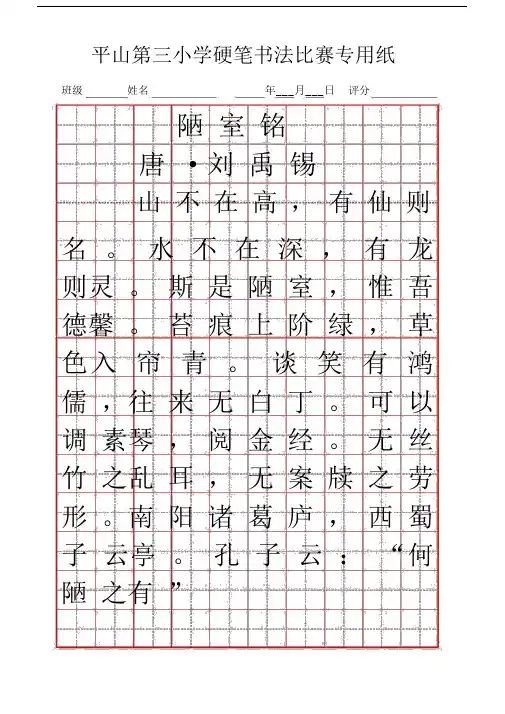 平山第三小学硬笔书法比赛专用纸
班级 ________姓名 ____________ ______年___月___日 评分____________
陋室铭
唐·刘禹锡
山不在高，有仙则
名。水不在深，有龙
则灵。斯是陋室，惟吾
德馨。苔痕上阶绿，草
色入帘青。谈笑有鸿
儒，往来无白丁。可以
调素琴，阅金经。无丝
竹之乱耳，无案牍之劳
形。南阳诸葛庐，西蜀
子云亭。孔子云：“何
陋之有”